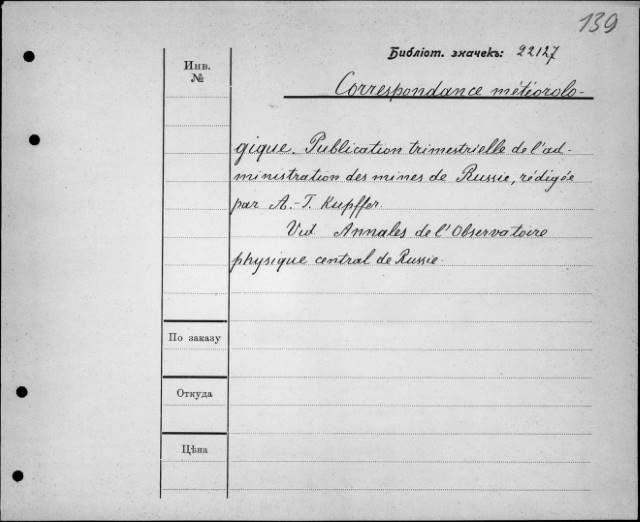 139
Библіот. значекъ: 22127
Инв.
№
Correspondance météorolo-
gique. Publication trimestrielle de l'ad-
ministration des mines de Russie, rédigée
par A.-T. Kupffer.
Vid Annales de l'Observatoire
physique central de Russie.
По заказу
Откуда
Цѣна